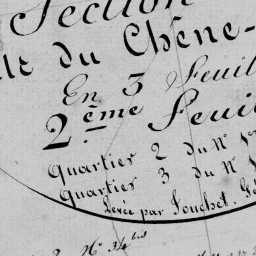 Section
du Chêne-
En 3 Feuil
2ème Feuil
Quartier 2 du N°
Quartier 3 du N°
Levée par Souchet, Gé